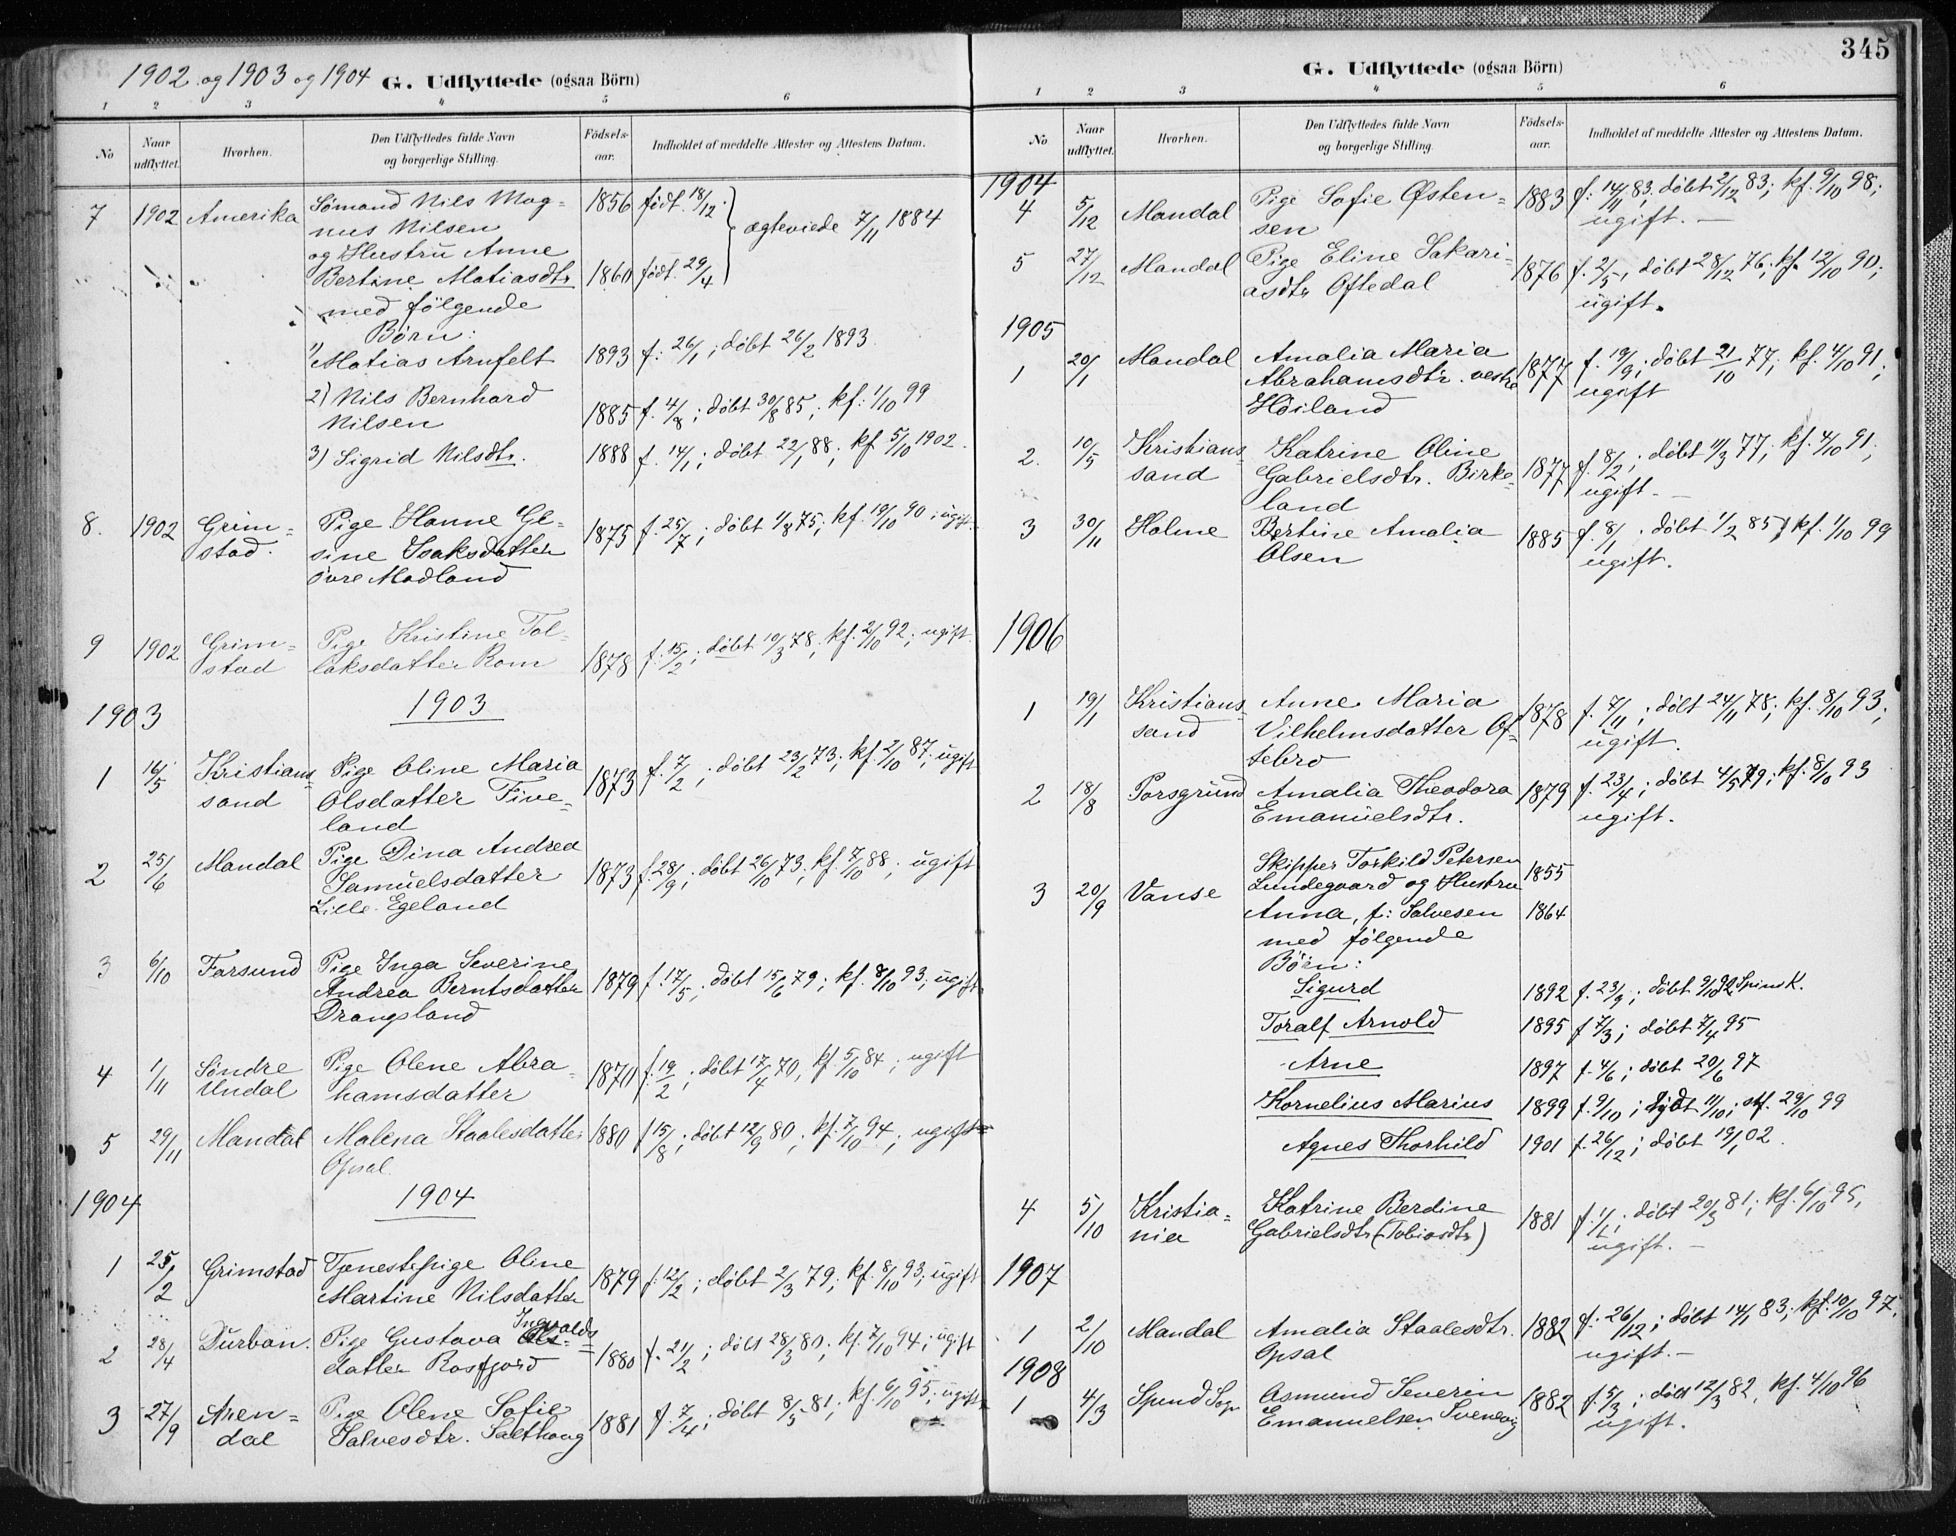 1902 og 1903 og 1904
G. Udflyttede (ogsaa Börn)
1 2 3 4 5 6
No
Naar udflyttet.
Hvorhen.
Den Udflyttedes fulde Navn og borgerlige Stilling.
Födsels-aar.
Indholdet af meddelte Attester og Attestens Datum.
7 1902 Amerika Sømand Nils Mag- 1856 født 18/12
nus Nilsen ægteviede 7/11 1884
og Hustru Anne
Bertine Matiasdtr 1860 født 29/4
med følgende
Børn:
1) Matias Arnfelt 1893 f. 26/1; døbt 26/2 1893
2) Nils Bernhard
Nilsen 1885 f. 4/8; døbt 30/8 85; kf. 1/10 99
3) Sigrid Nilsdtr. 1888 f. 14/1; døbt 22/1 88; kf. 5/10 1902.
8. 1902 Grim- Pige Hanne Ge- 1875 f. 25/7; døbt 1/8 75; kf. 19/10 90; ugift
stad. sine Isaksdatter
övre Madland
9 1902 Grim- Pige Kristine Tol-
stad laksdatter Rom 1878 f. 15/2; døbt 19/3 78; kf. 2/10 92; ugift.
1903 1903
1 16/5 Kristians- Pige Oline Maria 1873 f. 7/2; døbt 23/2 73; kf. 2/10 87; ugift
sand Olsdatter Five-
land
2 25/6 Mandal Pige Dina Andrea 1873 f. 28/9; døbt 26/10 73; kf. 7/10 88; ugift
Samuelsdatter
Lille Egeland
3 6/10 Farsund Pige Inga Severine
Andrea Berntsdatter 1879 f. 17/5; døbt 15/6 79; kf. 8/10 93; ugift
Drangsland
4 1/11 Söndre Pige Olene Abra- 1870 f. 19/2; døbt 17/4 70, kf. 5/10 84; ugift
Undal hamsdatter
5 29/11 Mandal Malena Staalesdatter 1880 f 15/8; døbt 12/9 80; kf. 7/10 94; ugift
Opsal
1904 1904
1 25/2 Grimstad Tjenestepige Oline 1879 f. 12/2; døbt 2/3 79; kf. 8/10 93; ugift
Martine Nilsdatter
Ingvalds
2 28/4 Durban. Pige Gustava
datter Rosfjord 1880 f. 21/2; døbt 28/3 80; kf. 7/10 94; ugift
3 27/9 Aren- Pige Olene Sofie 1881 f. 7/4; døbt 8/5 81; kf. 6/10 95; ugift
dal Salvesdtr. Salthaug
345
G. Udflyttede (ogsaa Börn)
1 2 3 4 5 6
No
Naar udflyttet.
Hvorhen.
Den Udflyttedes fulde Navn og borgerlige Stilling.
Födsels-aar.
Indholdet af meddelte Attester og Attestens Datum.
1904
4 5/12 Mandal Pige Sofie Østen- 1883 f. 14/11 83, døbt 2/12 83; kf. 9/10 98;
sen ugift. –
5 27/12 Mandal Pige Eline Sakari- 1876 f. 2/5, døbt 28/12 76. kf. 12/10 90;
asdtr Oftedal ugift.
1905
1 20/1 Mandal Amalia Maria 1877 f. 19/9; døbt 21/10 77; kf. 4/10 91;
Abrahamsdtr. vestre ugift
Höiland
2. 10/5 Kristians- Katrine Oline 1877 f. 8/2; døbt 11/3 77; kf. 4/10 91;
sand Gabrielsdtr. Birke- ugift. –
land
3 30/11 Holme Bertine Amalia 1885 f. 8/1. døbt 1/2 85; kf. 1/10 99
Olsen ugift.
1906
1 19/1 Kristians- Anne Maria 1878 f. 7/11; døbt 24/11 78; kf. 8/10 93;
sand Vilhelmsdatter Of- ugift.
tebro
2 18/8 Porsgrund Amalia Theodora 1879 f. 23/4; døbt 4/5 79; kf. 8/10 93
Emanuelsdtr. ugift.
Skipper Torkild Petersen 1855
3 20/9 Vanse Lundegaard og Hustru
Anna, f: Salvesen 1864
med følgende
Børn:
Sigurd 1892 f. 23/9; døbt 9/10 92 Spind K.
Toralf Arnold 1895 f 7/3; døbt 7/4 95
Arne 1897 f. 4/6; døbt 20/6 97
Kornelius Marius 1899 f. 9/10; døbt 11/10; stf. 29/10 99
Agnes Thorhild 1901 f. 26/12; døbt 19/1 02.
4 5/10 Kristia- Katrine Berdine 1881 f. 1/1; døbt 20/3 81; kf. 6/10 95,
nia Gabrielsdtr (Tobiasdtr) ugift. –
1907
1 2/10 Mandal Amalia Staalesdtr. 1882 f. 26/12; døbt 14/1 83; kf. 10/10 97.
Opsal ugift. –
1908
1 4/3 Spind Sogn Asmund Severin 1882 f. 5/3; døbt 12/3 82, kf. 4/10 96
Emanuelsen Svenevig ugift.